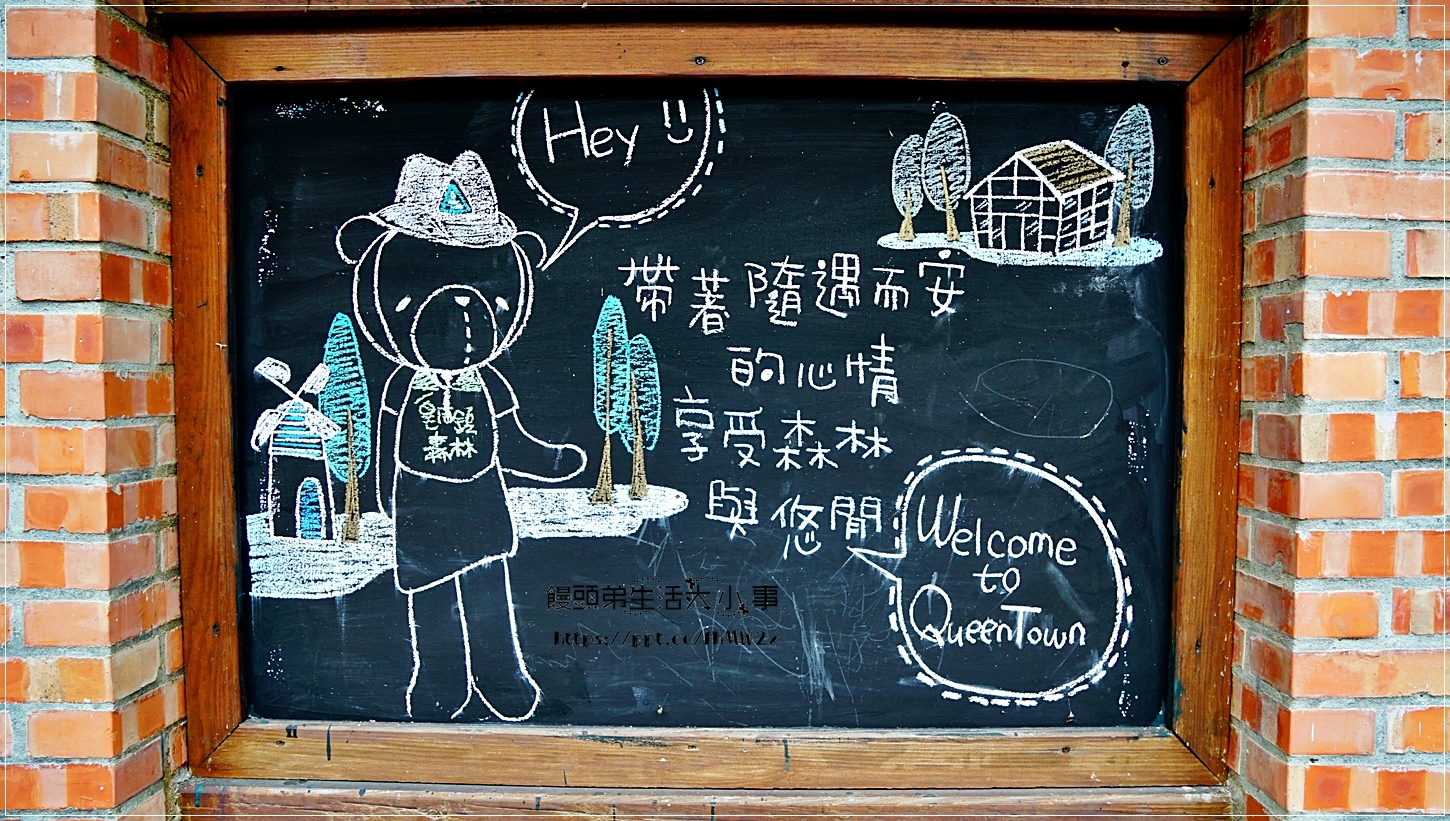 Hey
帶著隨遇而安
的心情
享受森林
與悠閒
皇后鎮
森林
Welcome
to
QueenTown
饅頭弟生活大小事